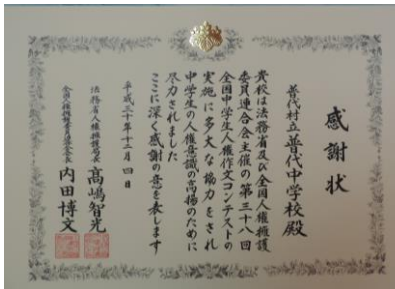 感謝状
普代村立普代中学校殿
貴校は法務省及び全国人権擁護
委員連合会主催の第三十八回
全国中学生人権作文コンテストの
実施に多大な協力をされ
中学生の人権意識の高揚のために
尽力されました
ここに深く感謝の意を表します
平成三十年十二月四日
法務省人権擁護局長 髙嶋智光
全国人権擁護委員連合会長 内田博文